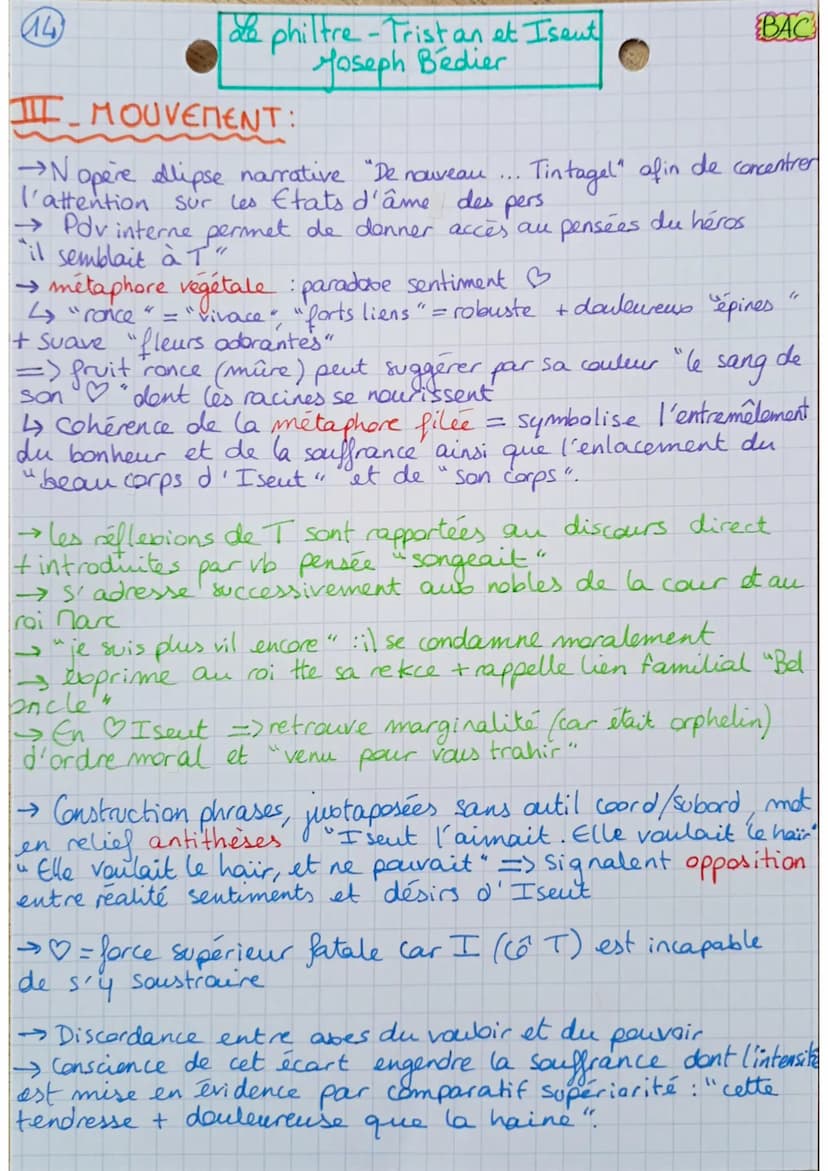 14
Le philtre - Tristan et Iseut
Joseph Bédier
BAC
III - MOUVEMENT :
→ N opère ellipse narrative "De nouveau ... Tintagel" afin de concentrer
l'attention sur les Etats d'âme des pers
→ Pdv interne permet de donner accès au pensées du héros
"il semblait à T"
→ métaphore végétale : paradoxe sentiment ♡
↳ "ronce" = "vivace", "forts liens" = robuste + douloureux "épines"
+ suave "fleurs odorantes"
=> fruit ronce (mûre) peut suggérer par sa couleur "le sang de
son ♡" dont les racines se nourissent
↳ cohérence de la métaphore filée = symbolise l'entremêlement
du bonheur et de la souffrance ainsi que l'enlacement du
"beau corps d'Iseut" et de "son corps".
→ les réflexions de T sont rapportées au discours direct
+ introduites par vb pensée "songeait"
→ s'adresse successivement aux nobles de la cour et au
roi Marc
→ "je suis plus vil encore" : il se condamne moralement
→ exprime au roi tte sa rekce + rappelle lien familial "Bel
oncle"
→ En ♡ Iseut => retrouve marginalité (car était orphelin)
d'ordre moral et "venu pour vous trahir"
→ Construction phrases, juxtaposées sans outil coord/subord, met
en relief antithèses "Iseut l'aimait. Elle voulait le haïr"
"Elle voulait le haïr, et ne pouvait" => signalent opposition
entre réalité sentiments et désirs d'Iseut
→ ♡ = force supérieur fatale car I (cô T) est incapable
de s'y soustraire
→ Discordance entre axes du vouloir et du pouvoir
→ Conscience de cet écart engendre la souffrance dont l'intensité
est mise en évidence par comparatif supériorité : "cette
tendresse + douleureuse que la haine".